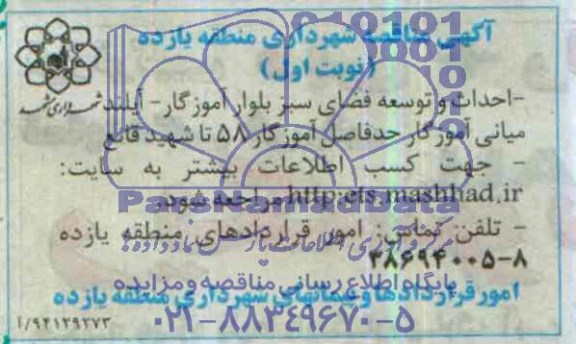 آگهی مناقصه شهرداری منطقه یازده
(نوبت اول)
شهرداری مشهد
-احداث و توسعه فضای سبز بلوار آموزگار- آیلند
میانی آموزگار حدفاصل آموزگار ۵۸ تا شهید قانع
- جهت کسب اطلاعات بیشتر به سایت:
http:ets.mashhad.ir مراجعه شود.
ParsNamadData
- تلفن تماس: امور قراردادهای منطقه یازده
۳۸۶۹۴۰۰۵-۸
پایگاه اطلاع رسانی مناقصه و مزایده
امور قراردادها و پیمانهای شهرداری منطقه یازده
۰۲۱-۸۸۳۴۹۶۷۰-۵
/۹۴۱۲۹۲۷۳